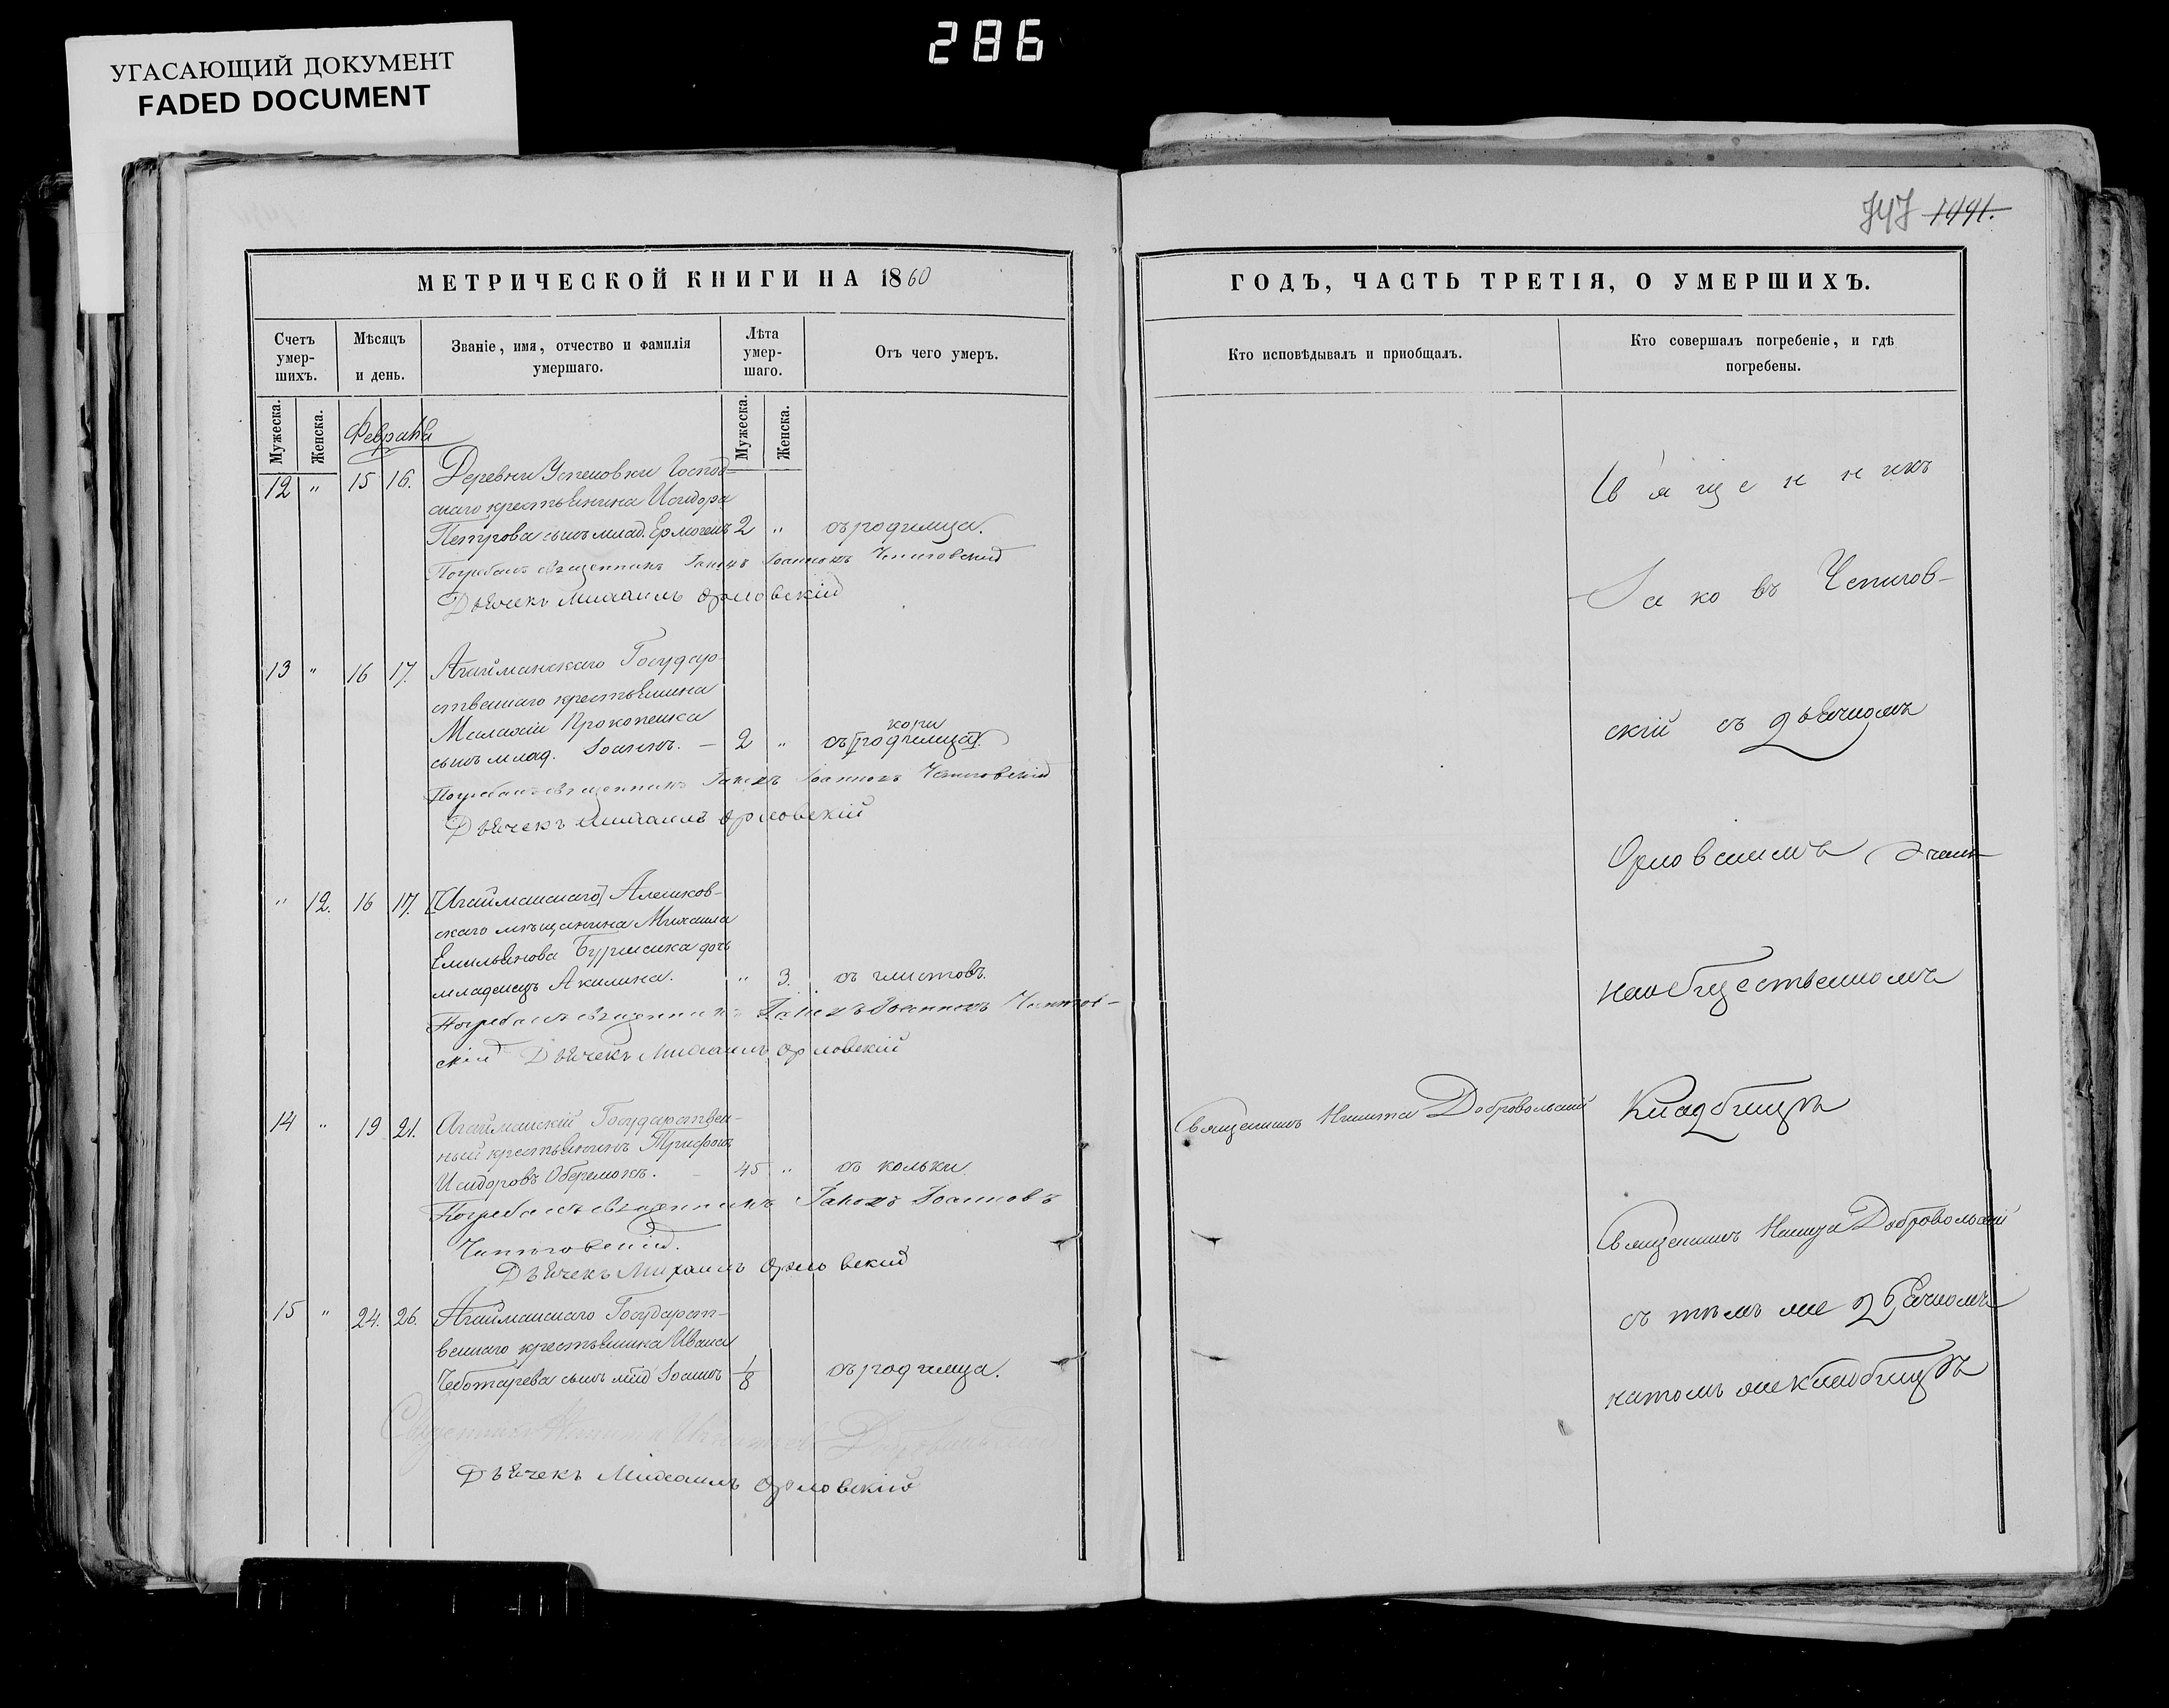 286
УГАСАЮЩИЙ ДОКУМЕНТ
FADED DOCUMENT
747 1441.
МЕТРИЧЕСКОЙ КНИГИ НА 1860
Счетъ умер-шихъ.
Мѣсяцъ и день.
Званіе, имя, отчество и фамилія умершаго.
Лѣта умер-шаго.
Отъ чего умеръ.
Мужеска.
Женска.
Мужеска.
Женска.
Февраля
12 " 15 16. Деревни Успеновки Господ-
скаго крестьянина Исидора
Петрова сынъ млад. Ермогенъ 2 " отъ родимца.
Погребалъ священникъ Іаковъ Іоанновъ
Дьячекъ Михаилъ Орловскій
13 " 16 17. Агайманскаго Государ-
ственнаго крестьянина
Прокопенка
сынъ млад. Іоаннъ. — 2 " отъ [родимца]. кори
Погребалъ священникъ Іаковъ Іоанновъ
Дьячекъ Михаилъ Орловскій
" 12. 16 17. [Агайманскаго] Алешков-
скаго мѣщанина Михаила
Емельянова дочь
младенецъ Акилина. " 3. отъ глистовъ.
Погребалъ священникъ Іаковъ Іоанновъ
скій Дьячекъ Михаилъ Орловскій
14 " 19 21. Агайманскій Государствен-
ный крестьянинъ Трифонъ
Исидоровъ — 45 " отъ кольки.
Погребалъ священникъ Іаковъ Іоанновъ
Дьячекъ Михаилъ Орловскій
15 " 24. 26. Агайманскаго Государст-
веннаго крестьянина Ивана
Чеботарева сынъ млад Іоаннъ 1/8 отъ родимца.
Священникъ Никита Добровольскій
Дьячекъ Михаилъ Орловскій
ГОДЪ, ЧАСТЬ ТРЕТІЯ, О УМЕРШИХЪ.
Кто исповѣдывалъ и приобщалъ.
Кто совершалъ погребеніе, и гдѣ погребены.
Священникъ
Іаковъ
скій съ дьячкомъ
Орловскимъ
на общественномъ
Священникъ Никита Добровольскій
Кладбищѣ
Священникъ Никита Добровольскій
съ тѣмъ же дьячкомъ
на томъ же кладбищѣ